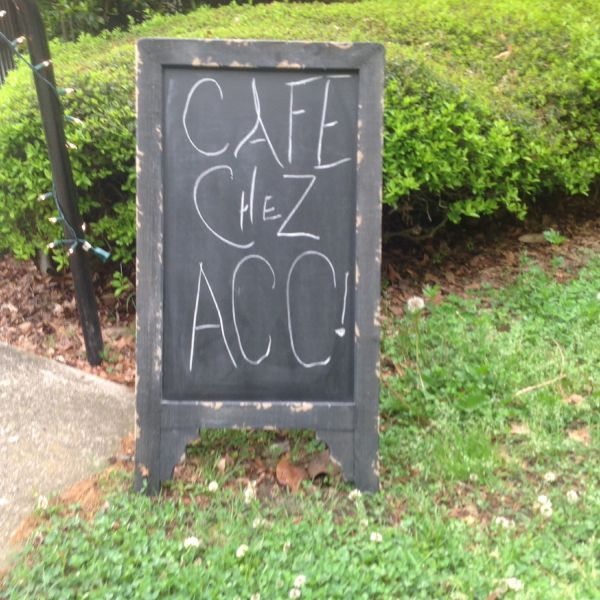 CAFE
CHeZ
ACC!